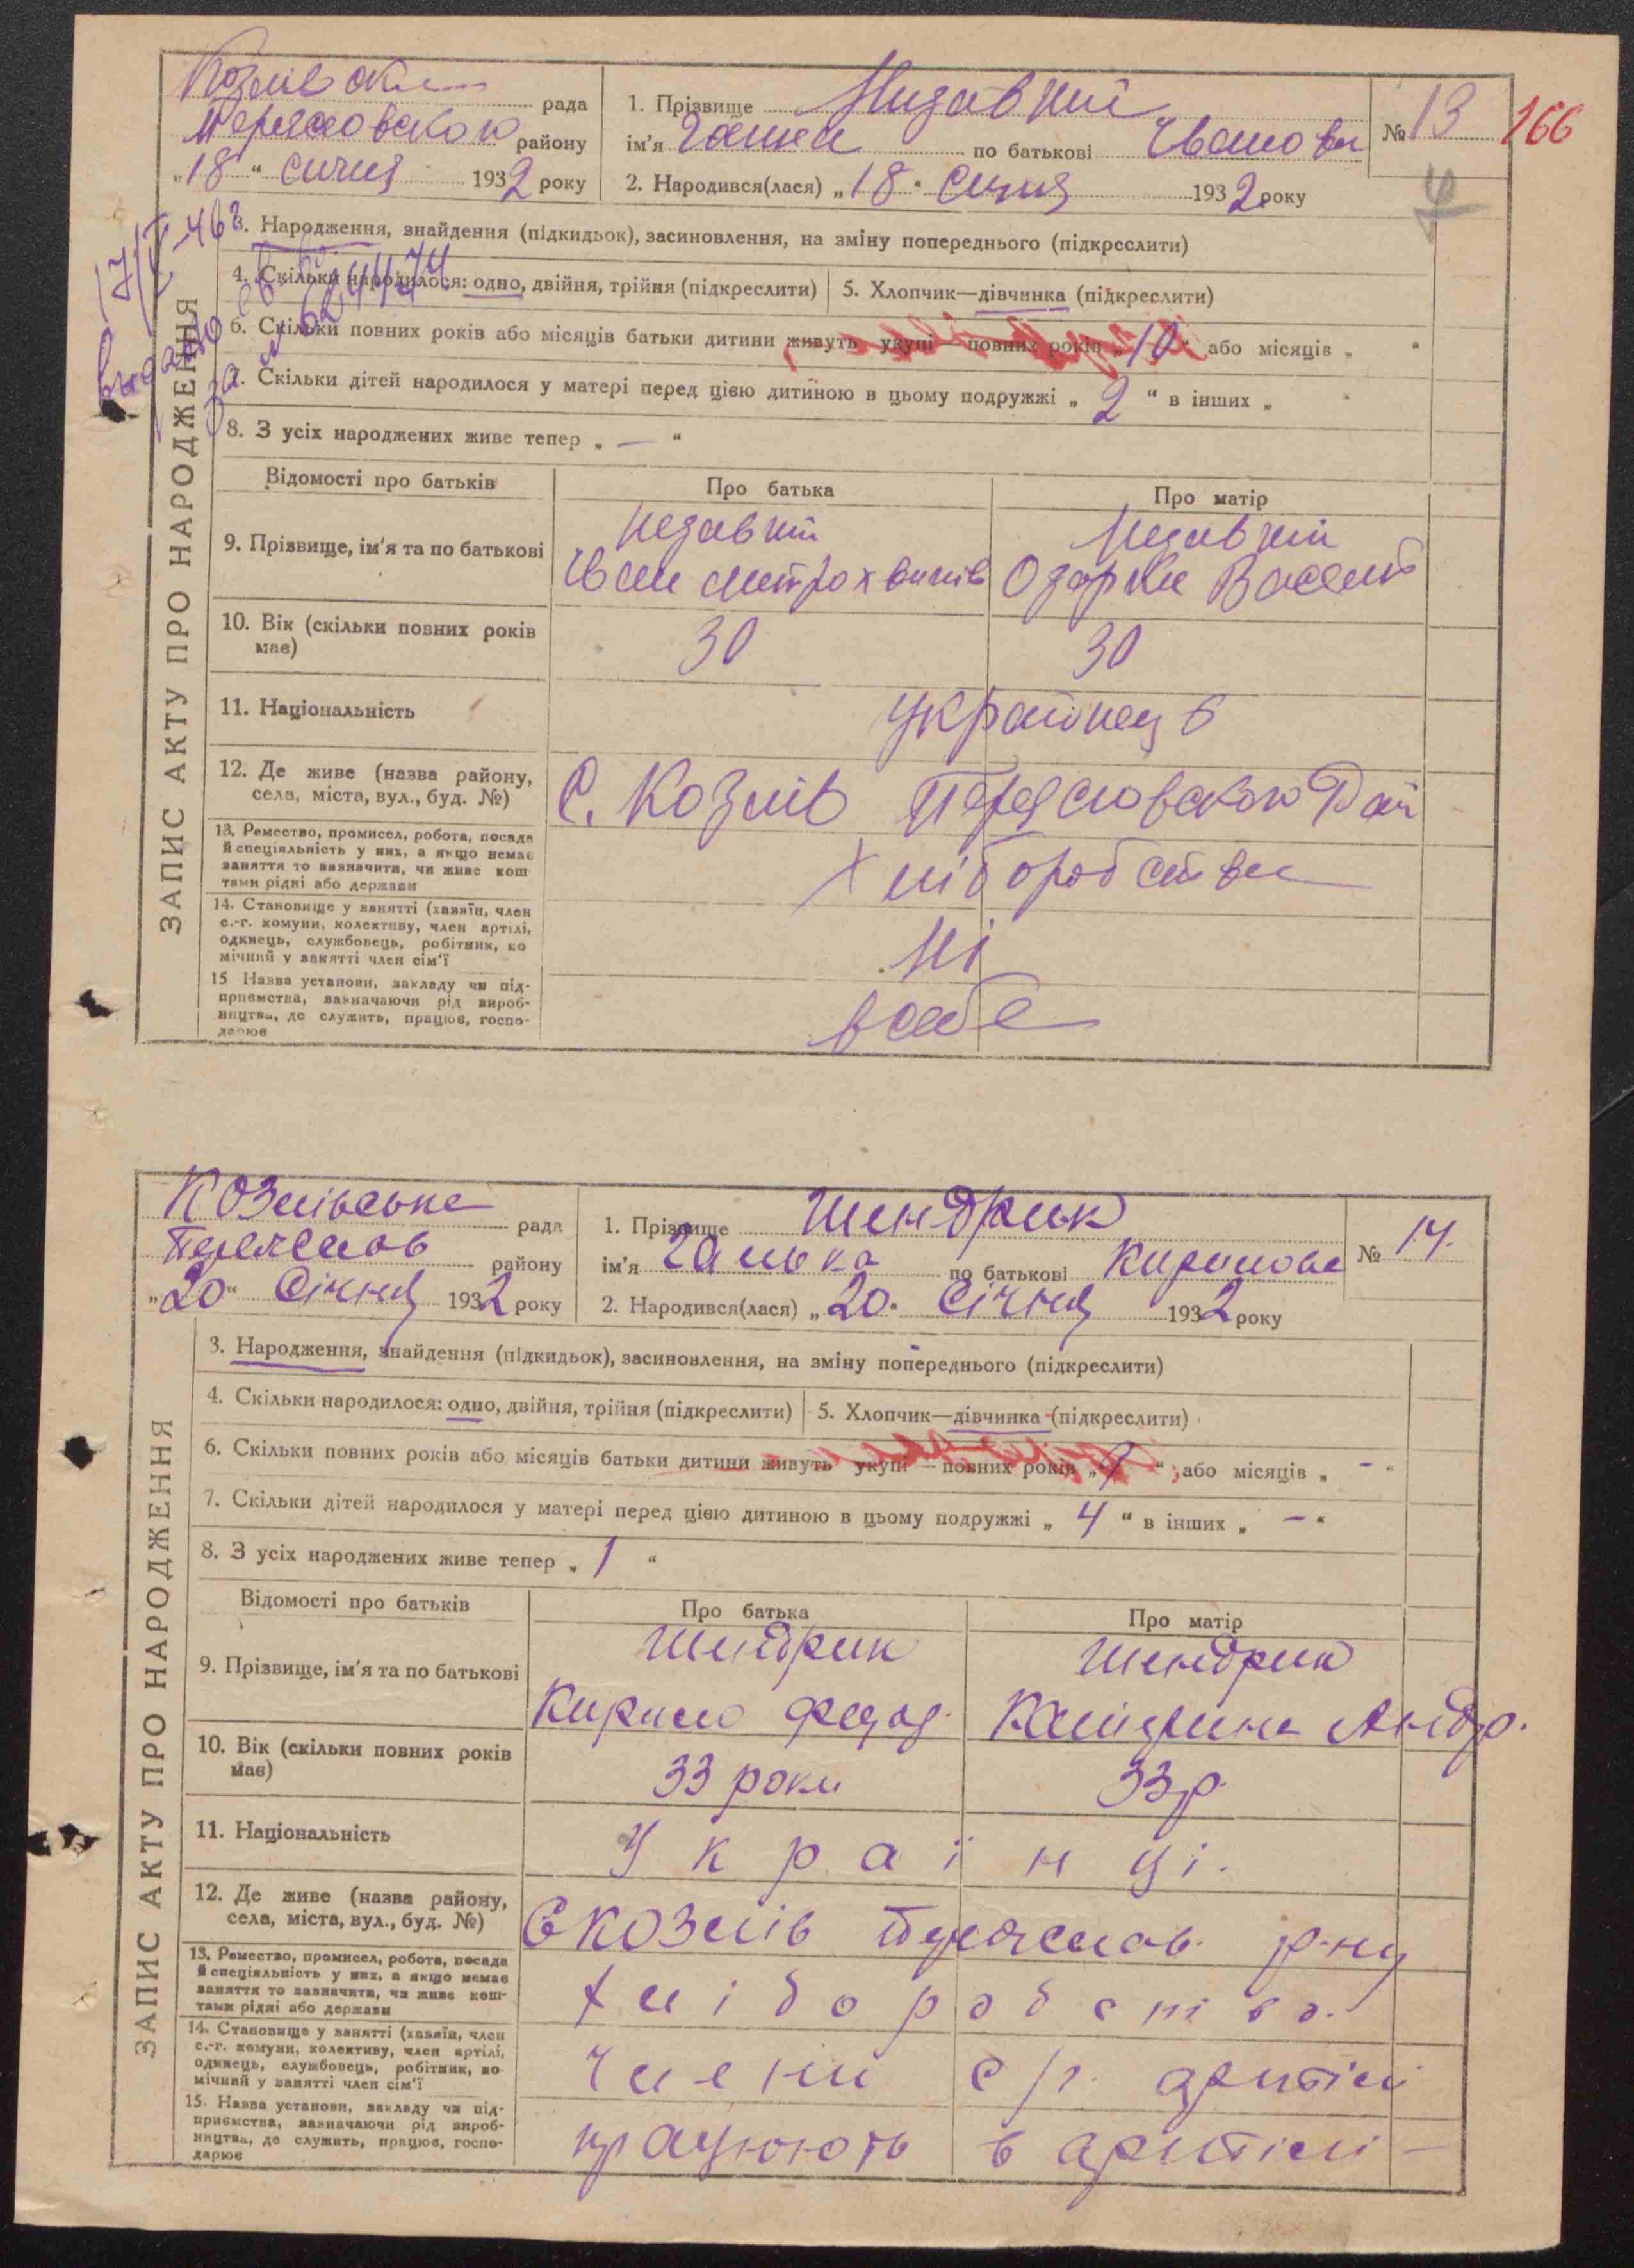 166
рада
району
„18“ 1932 року
1. Прізвище
ім'я Ганна по батькові Івановн
№ 13
2. Народився(лася) „18“ 1932 року
ЗАПИС АКТУ ПРО НАРОДЖЕННЯ
3. Народження, знайдення (підкидьок), засиновлення, на зміну попереднього (підкреслити)
4. Скільки народилося: одно, двійня, трійня (підкреслити)
5. Хлопчик—дівчинка (підкреслити)
6. Скільки повних років або місяців батьки дитини живуть укупі—повних років „10“ або місяців „ “
7. Скільки дітей народилося у матері перед цією дитиною в цьому подружжі „2“ в інших „ “
8. З усіх народжених живе тепер „—“
Відомості про батьків
Про батька
Про матір
9. Прізвище, ім'я та по батькові
Іван Митрохвинів
Одарка Васил
10. Вік (скільки повних років
має)
30
30
11. Національність
12. Де живе (назва району,
села, міста, вул., буд. №)
С. Козлів
13. Ремество, промисел, робота, посада
й спеціяльність у них, а якщо немає
заняття то зазначити, чи живе кош-
тами рідні або держави
Хліборобства
14. Становище у занятті (хазяїн, член
с.-г. комуни, колективу, член артілі,
одинець, службовець, робітник, по
мічний у занятті член сім'ї
ні
15 Назва установи, закладу чи під-
приємства, зазначаючи рід вироб-
ництва, де служить, працює, госпо-
дарює
в себе
Козлівська рада
Переяслав району
„20“ Січня 1932 року
1. Прізвище Шендрик
ім'я Галька по батькові Кирилова
№ 14.
2. Народився(лася) „20“ Січня 1932 року
ЗАПИС АКТУ ПРО НАРОДЖЕННЯ
3. Народження, знайдення (підкидьок), засиновлення, на зміну попереднього (підкреслити)
4. Скільки народилося: одно, двійня, трійня (підкреслити)
5. Хлопчик—дівчинка (підкреслити)
6. Скільки повних років або місяців батьки дитини живуть укупі—повних років „9“, або місяців „-“
7. Скільки дітей народилося у матері перед цією дитиною в цьому подружжі „4“ в інших „-“
8. З усіх народжених живе тепер „1“
Відомості про батьків
Про батька
Про матір
9. Прізвище, ім'я та по батькові
Шендрик
Кирило Федор.
Шендрик
Катерина Андр.
10. Вік (скільки повних років
має)
33 роки
33 р.
11. Національність
Українці.
12. Де живе (назва району,
села, міста, вул., буд. №)
С Козлів Переяслав. р-ну
13. Ремество, промисел, робота, посада
й спеціяльність у них, а якщо немає
заняття то зазначити, чи живе кош-
тами рідні або держави
хліборобство.
14. Становище у занятті (хазяїн, член
с.-г. комуни, колективу, член артілі,
одинець, службовець, робітник, по
мічний у занятті член сім'ї
Члени с/г. артілі
15. Назва установи, закладу чи під-
приємства, зазначаючи рід вироб-
ництва, де служить, працює, госпо-
дарює
працюють в артілі —